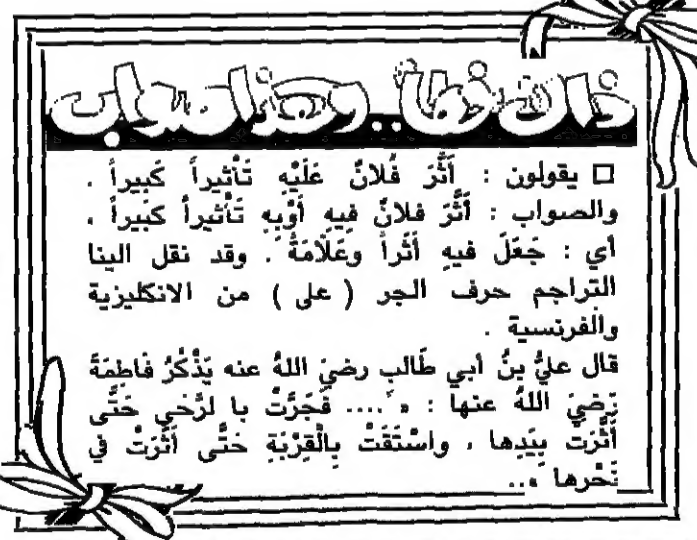 ذاك خطأ.. وهذا صواب
□ يقولون : أَثَّرَ فُلانٌ عَلَيْهِ تَأْثيراً كَبيراً .
والصواب : أَثَّرَ فلانٌ فيهِ أوْبِهِ تَأْثيراً كَبيراً ،
أي : جَعَلَ فيهِ أَثَراً وعَلَامَةً . وقد نقل الينا
التراجم حرف الجر ( على ) من الانكليزية
والفرنسية .
قال عليُّ بنُ أبي طَالبٍ رضيَ اللهُ عنه يَذْكُرُ فَاطِمَةَ
رَضيَ اللهُ عنها : « .... فَجَرَّتْ با لرَّحَى حَتَّى
أَثَّرَتْ بِيَدِها ، واسْتَقَتْ بِالْقِرْبَةِ حَتَّى أَثَّرَتْ في
نَحْرها »..